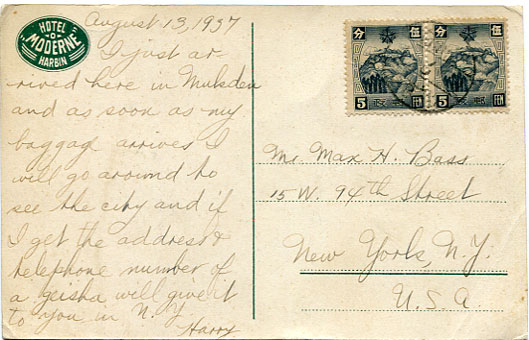 HOTEL
"O"
MODERNE
HARBIN
August 13, 1937
I just ar-
rived here in Mukden
and as soon as my
baggag arrives I
will go around to
see the city and if
I get the address &
telephone number of
a geisha will give it
to you in N.Y.
Harry
分 伍 分 伍
5 FEN 5 FEN
Mr. Max H. Bass
15 W. 94th Street
New York, N.Y.
U.S.A.